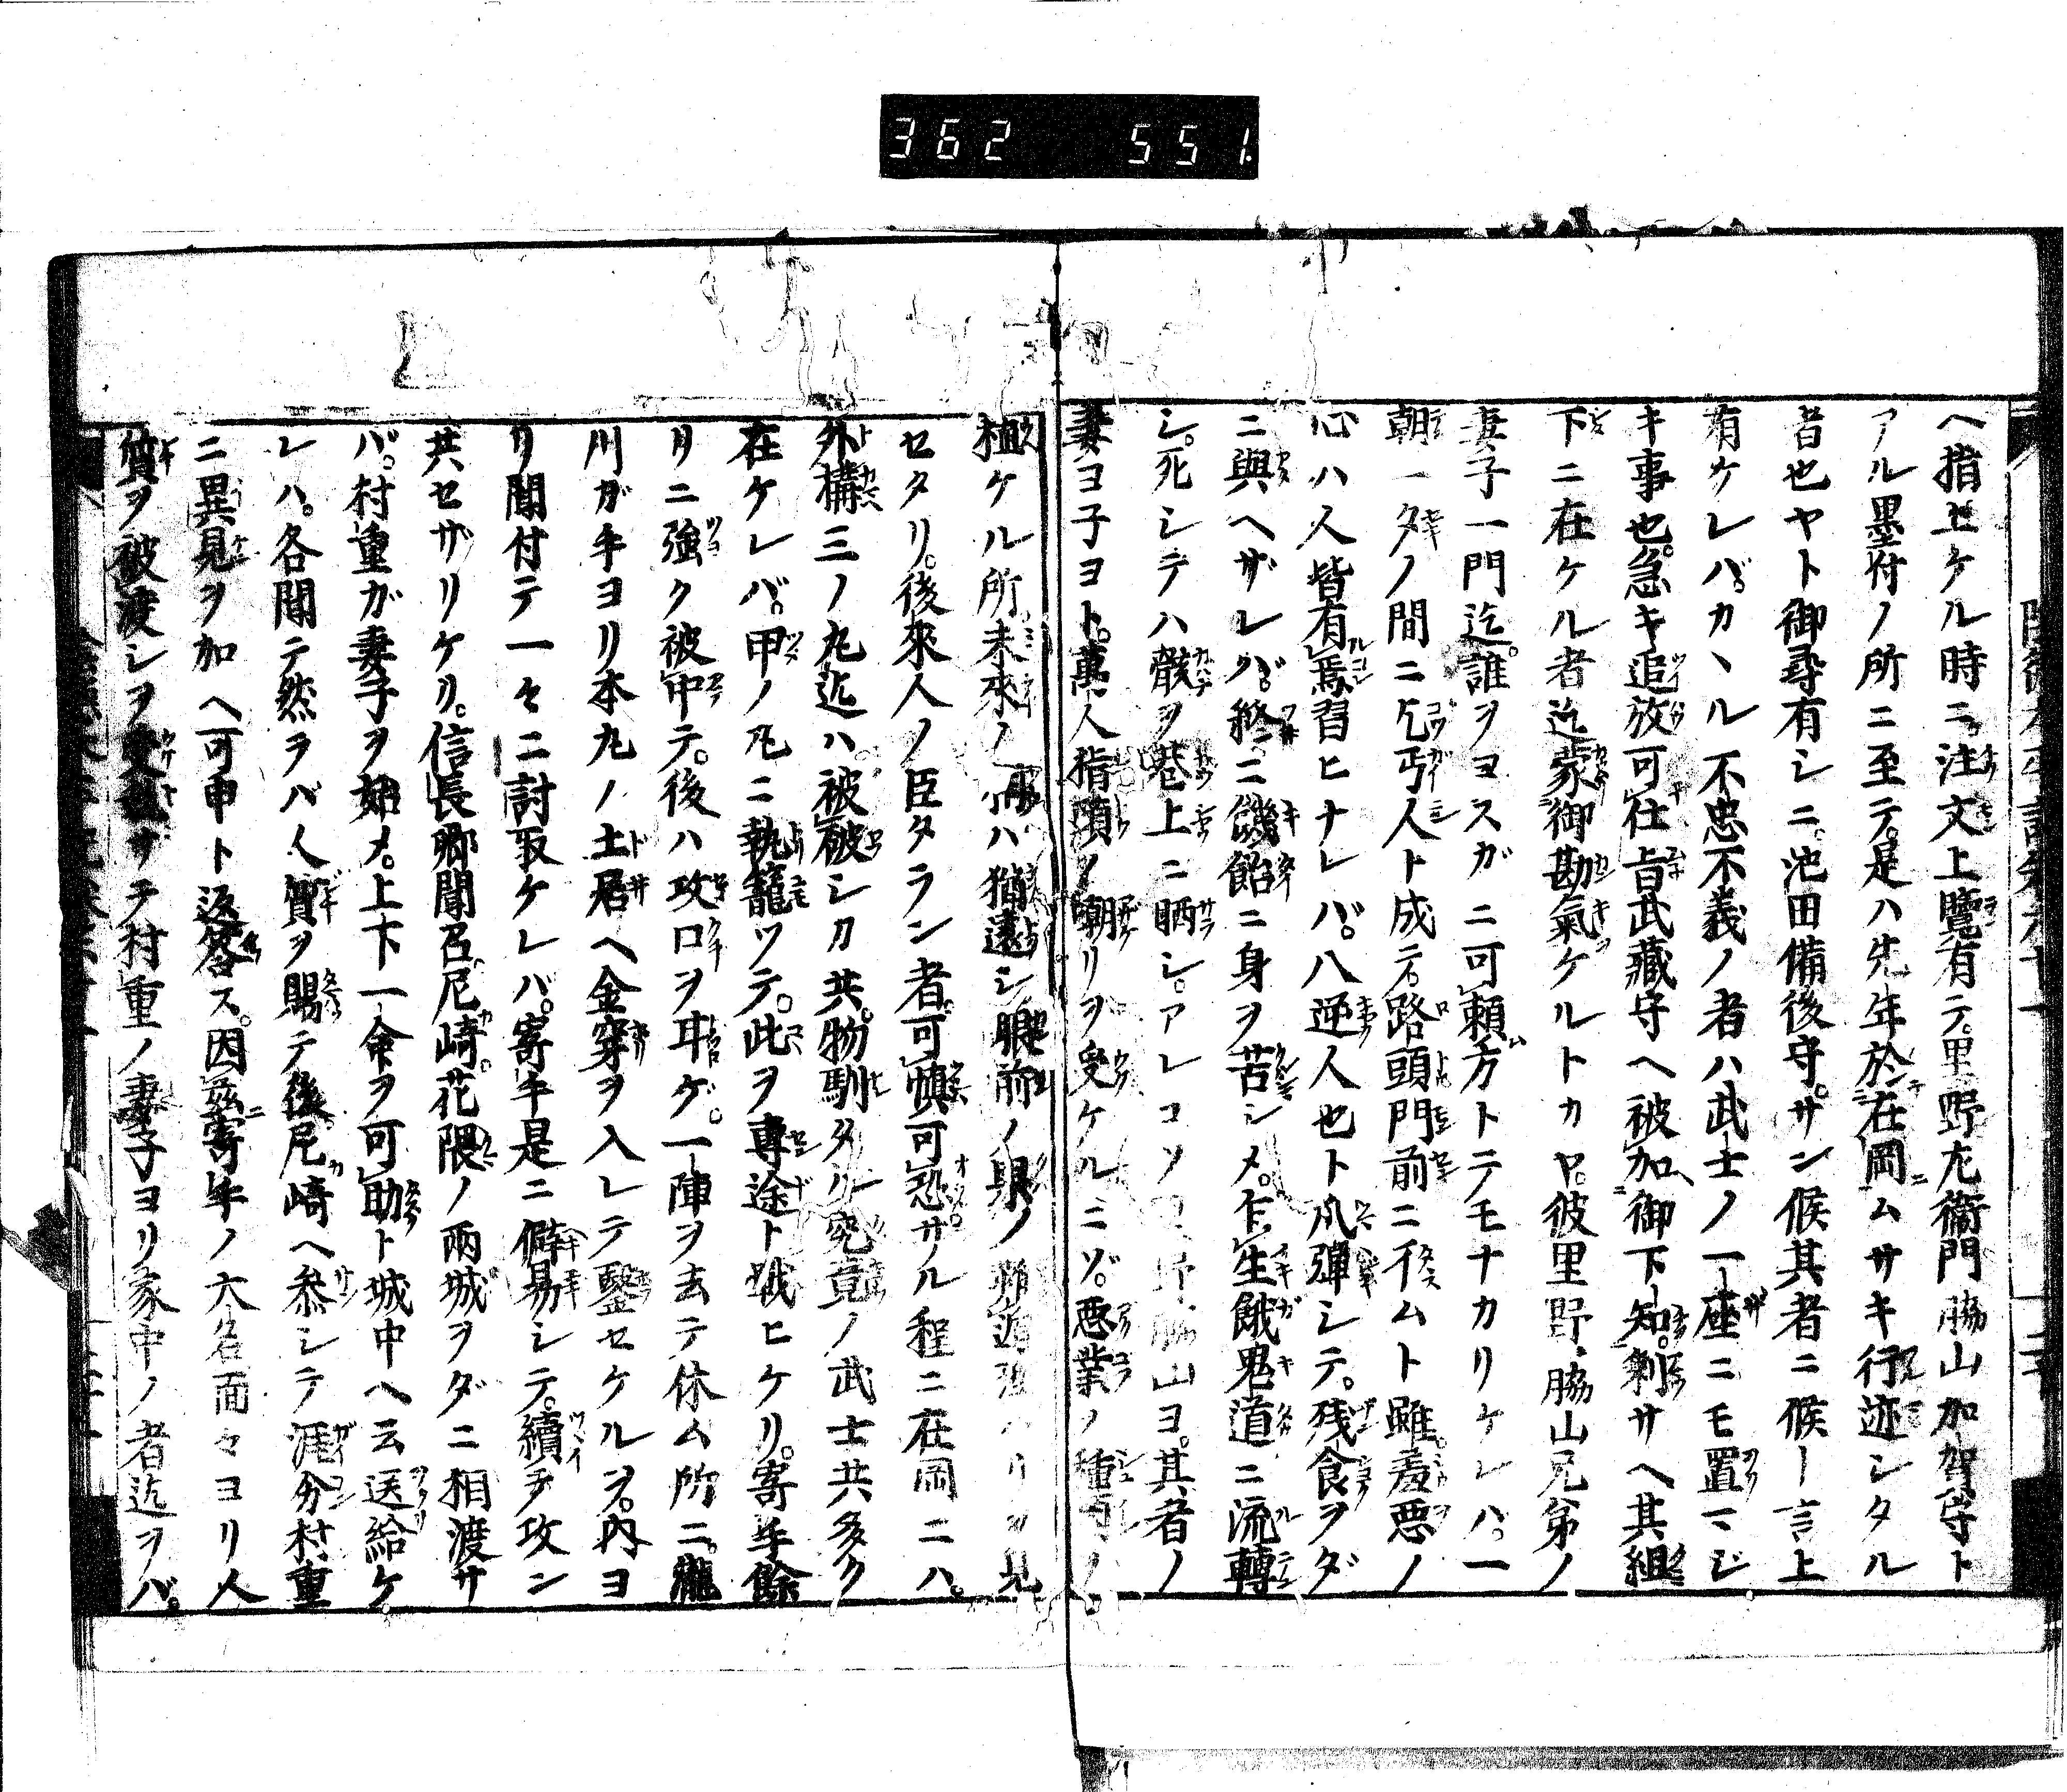 362 551.
ヘ指上ケル時ニ注文上覽有テ里野尤衞門脇山加賀守ト
アル墨付ノ所ニ至テ是ハ先年於在岡ムサキ行迹シタル
者也ヤト御尋有シニ池田備後守サン候其者ニ候ト言上
有ケレバカヽル不忠不義ノ者ハ武士ノ一座ニモ置マジ
キ事也急キ追放可仕旨武藏守ヘ被加御下知剰サヘ其組
下ニ在ケル者迄蒙御勘氣ケルトカヤ彼里野脇山兄弟ノ
妻子一門迄誰ヲヨスガニ可頼方トテモナカリケレハ一
朝一夕ノ間ニ乞丐人ト成テ路頭門前ニイムト雖羞悪ノ
心ハ人皆有焉習ヒナレバ八逆人也ト爪彈シテ残食ヲダ
ニ與ヘザレバ終ニ饑飴ニ身ヲ苦シメ乍生餓鬼道ニ流轉
シ死シテハ骸ヲ巷上ニ晒シアレコソ里野脇山ヨ其者ノ
妻ヨ子ヨト萬人指頭ノ嘲リヲ受ケルニゾ悪業ノ種子ノ
植ケル所未來ノ冊ハ猶遠シ眼前ノ界ノ
セタリ後來人ノ臣タラン者可愼可恐サル程ニ在岡ニハ
外構三ノ丸迄ハ被破シカ共物馴タル究竟ノ武士共多ク
在ケレバ甲ノ丸ニ執籠ツテ此ヲ專途ト戦ヒケリ寄手餘
リニ強ク被中テ後ハ攻口ヲ甘ゲ一陣ヲ去テ休ム所ニ瀧
川ガ手ヨリ本丸ノ土居ヘ金穿ヲ入レテ鑿セケルヲ内ヨ
リ聞付テ一々ニ討取ケレバ寄手是ニ僻易シテ續テ攻ン
共セザリケリ信長卿聞召尼崎花隈ノ兩城ヲダニ相渡サ
バ村重ガ妻子ヲ始メ上下一命ヲ可助ト城中ヘ云送給ケ
レハ各聞テ然ラバ人質ヲ賜テ後尼崎ヘ参シテ涯分村重
ニ異見ヲ加ヘ可申ト返答ス因茲寄手ノ大名面々ヨリ人
質ヲ被渡シヲ受取サテ村重ノ妻子ヨリ家中ノ者迄ヲバ